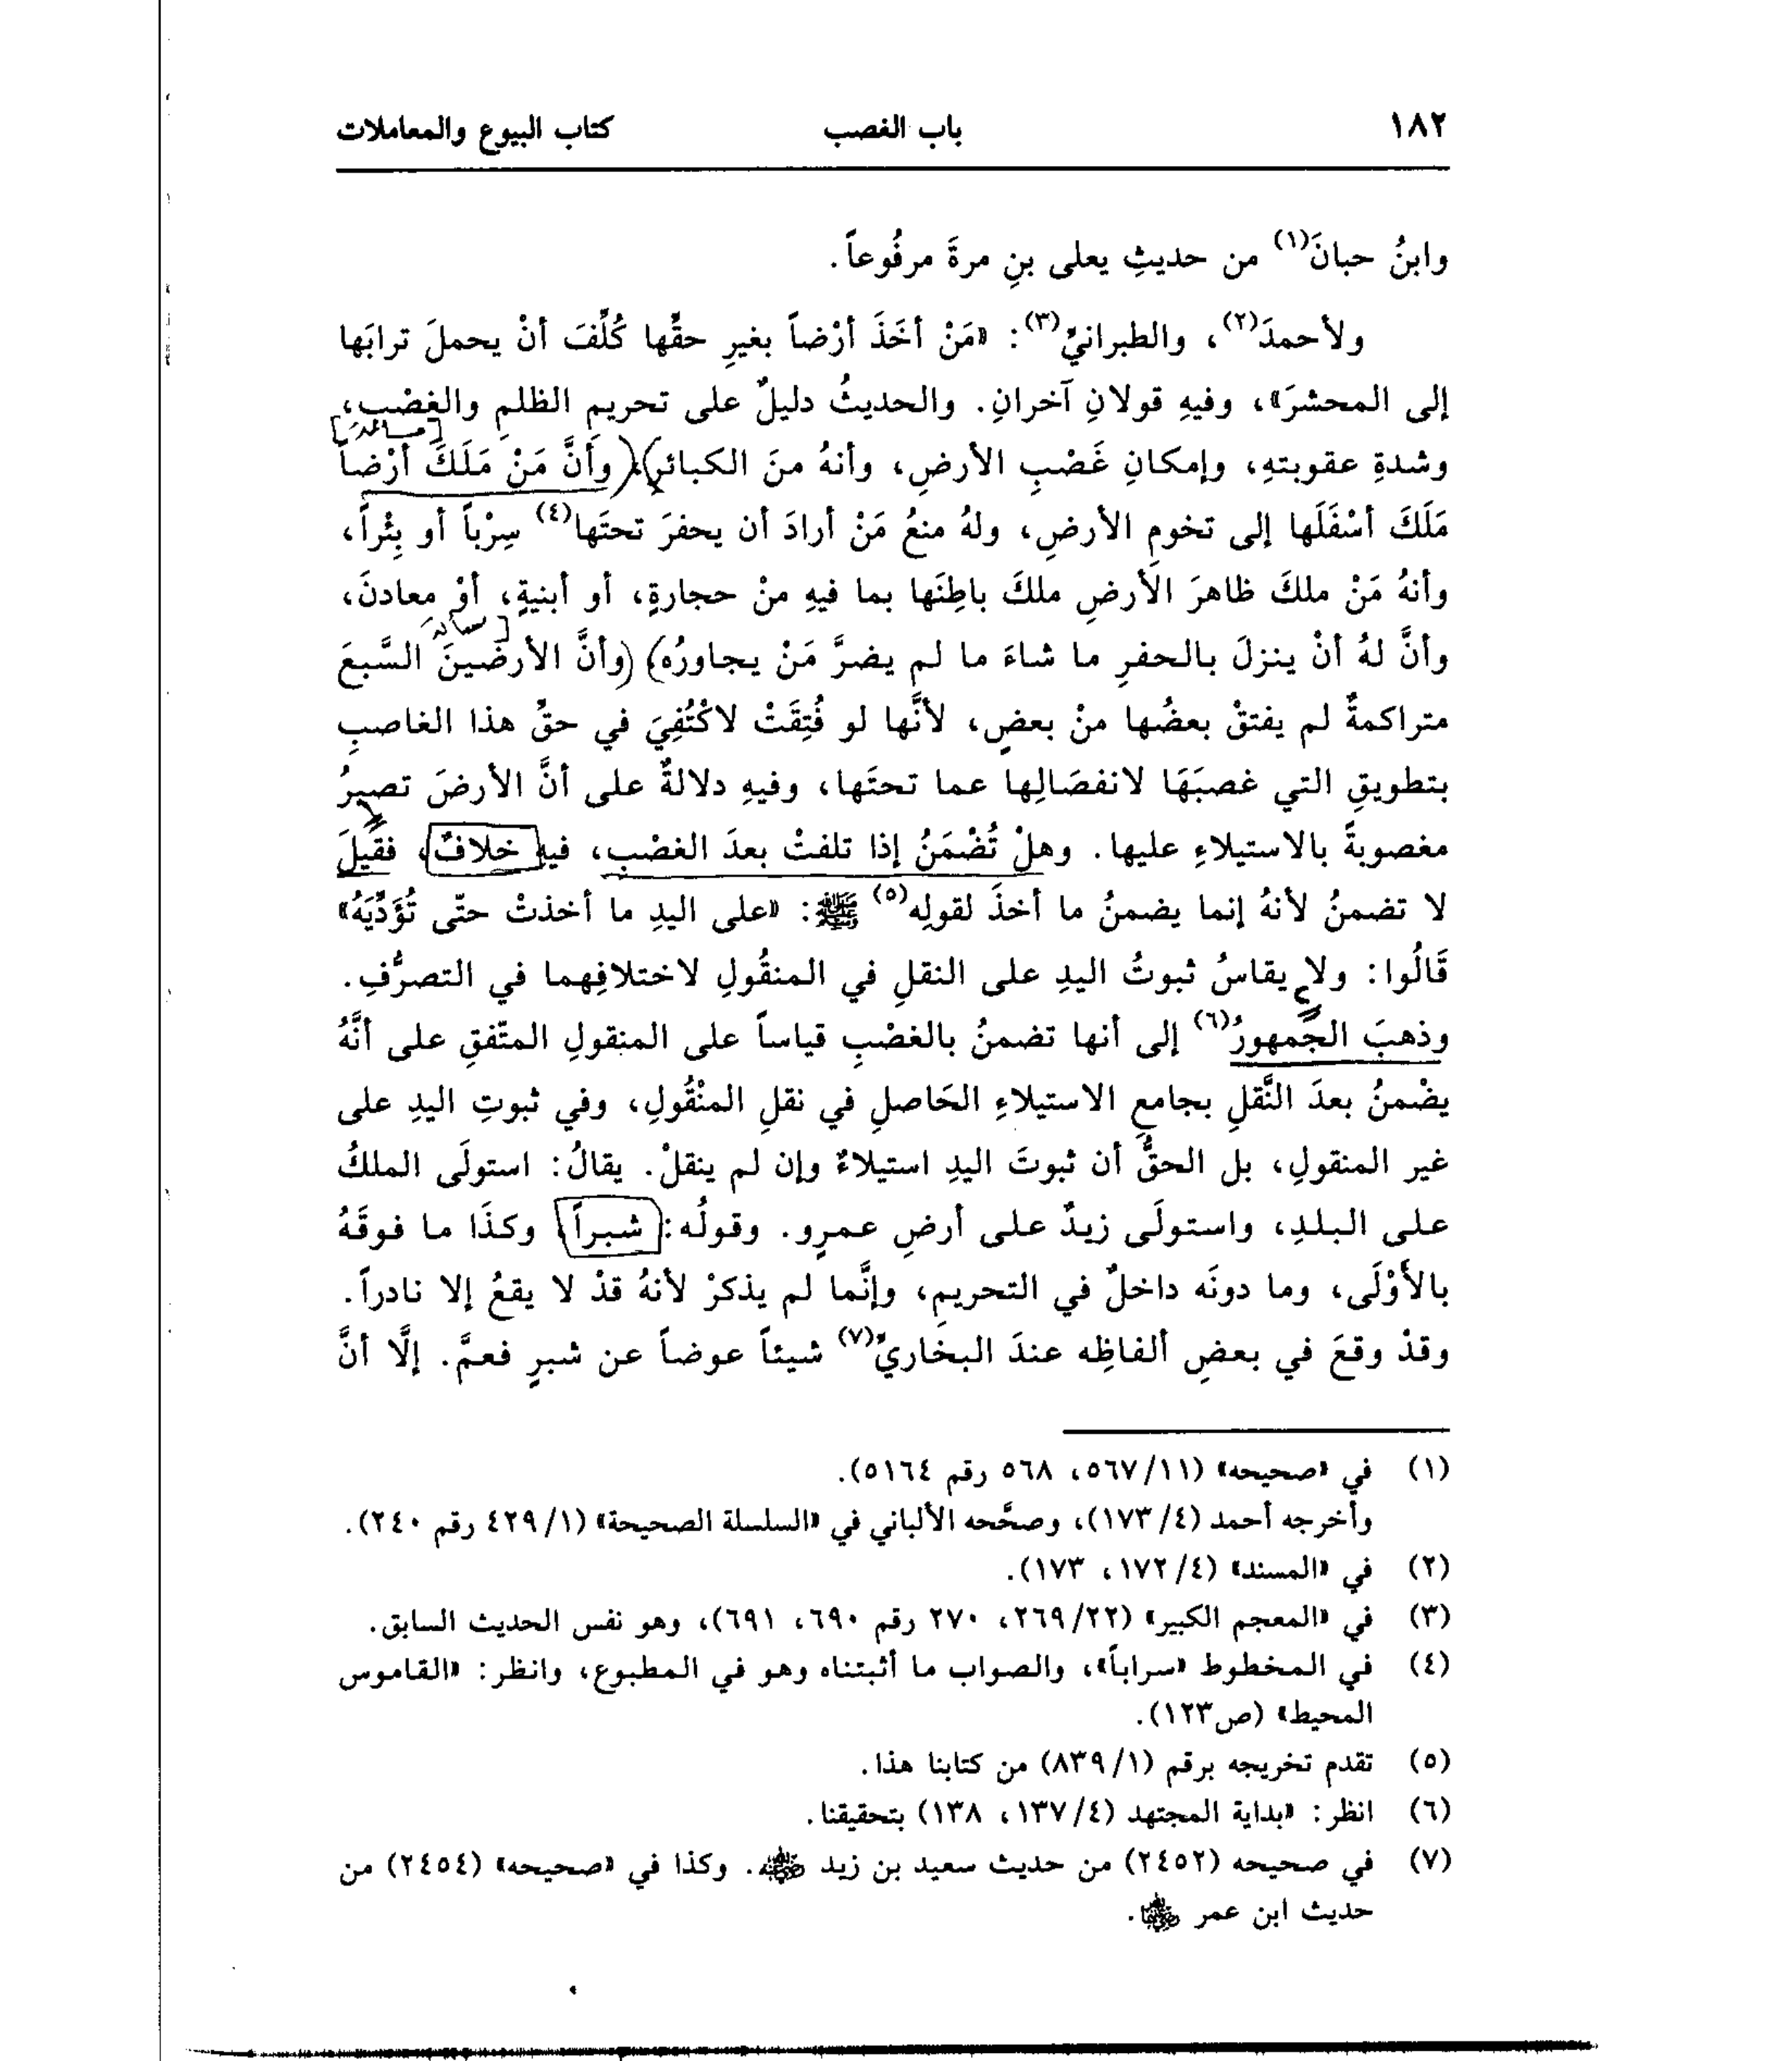 ١٨٢ باب الغصب كتاب البيوع والمعاملات
وابنُ حبانَ(١) من حديثِ يعلى بنِ مرةَ مرفُوعاً.
ولأحمدَ(٢)، والطبرانيِّ(٣): «مَنْ أخَذَ أرْضاً بغيرِ حقِّها كُلِّفَ أنْ يحملَ ترابَها
إلى المحشرَ»، وفيهِ قولانِ آخرانِ. والحديثُ دليلٌ على تحريمِ الظلمِ والغصْبِ،
وشدةِ عقوبتهِ، وإمكانِ غَصْبِ الأرضِ، وأنهُ منَ الكبائرِ، (وأنَّ مَنْ مَلَكَ أرْضاً
مَلَكَ أسْفَلَها إلى تخومِ الأرضِ، ولهُ منعُ مَنْ أرادَ أن يحفرَ تحتَها(٤) سِرْباً أو بِئْراً،
وأنهُ مَنْ ملكَ ظاهرَ الأرضِ ملكَ باطِنَها بما فيهِ منْ حجارةٍ، أو أبنيةٍ، أوْ معادنَ،
وأنَّ لهُ أنْ ينزلَ بالحفرِ ما شاءَ ما لم يضرَّ مَنْ يجاورُه) (وأنَّ الأرضينَ السَّبعَ
متراكمةٌ لم يفتقْ بعضُها منْ بعضٍ، لأنَّها لو فُتِقَتْ لاكْتُفِيَ في حقِّ هذا الغاصبِ
بتطويقِ التي غصبَهَا لانفصَالِها عما تحتَها، وفيهِ دلالةٌ على أنَّ الأرضَ تصيرُ
مغصوبةً بالاستيلاءِ عليها. وهلْ تُضْمَنُ إذا تلفتْ بعدَ الغصْبِ، فيهِ خلافٌ، فقيلَ
لا تضمنُ لأنهُ إنما يضمنُ ما أخذَ لقولِه(٥) ﷺ: «على اليدِ ما أخذتْ حتّى تُؤَدِّيَهُ»
قَالُوا: ولا يقاسُ ثبوتُ اليدِ على النقلِ في المنقُولِ لاختلافِهما في التصرُّفِ.
وذهبَ الجُمهورُ(٦) إلى أنها تضمنُ بالغصْبِ قياساً على المنقولِ المتّفقِ على أنَّهُ
يضْمنُ بعدَ النَّقلِ بجامعِ الاستيلاءِ الحَاصلِ في نقلِ المنْقُولِ، وفي ثبوتِ اليدِ على
غير المنقولِ، بل الحقُّ أن ثبوتَ اليدِ استيلاءٌ وإن لم ينقلْ. يقالُ: استولَى الملكُ
على البلدِ، واستولَى زيدٌ على أرضِ عمرٍو. وقولُه: شبراً، وكذَا ما فوقَهُ
بالأَوْلَى، وما دونَه داخلٌ في التحريمِ، وإنَّما لم يذكرْ لأنهُ قدْ لا يقعُ إلا نادراً.
وقدْ وقعَ في بعضِ ألفاظِه عندَ البخاريِّ(٧) شيئاً عوضاً عن شبرٍ فعمَّ. إلَّا أنَّ
(١) في «صحيحه» (١١/ ٥٦٧، ٥٦٨ رقم ٥١٦٤).
وأخرجه أحمد (٤/ ١٧٣)، وصحَّحه الألباني في «السلسلة الصحيحة» (١/ ٤٢٩ رقم ٢٤٠).
(٢) في «المسند» (٤/ ١٧٢، ١٧٣).
(٣) في «المعجم الكبير» (٢٢/ ٢٦٩، ٢٧٠ رقم ٦٩٠، ٦٩١)، وهو نفس الحديث السابق.
(٤) في المخطوط «سراباً»، والصواب ما أثبتناه وهو في المطبوع، وانظر: «القاموس
المحيط» (ص١٢٣).
(٥) تقدم تخريجه برقم (١/ ٨٣٩) من كتابنا هذا.
(٦) انظر: «بداية المجتهد (٤/ ١٣٧، ١٣٨) بتحقيقنا.
(٧) في صحيحه (٢٤٥٢) من حديث سعيد بن زيد رضي الله عنه. وكذا في «صحيحه» (٢٤٥٤) من
حديث ابن عمر رضي الله عنهما.